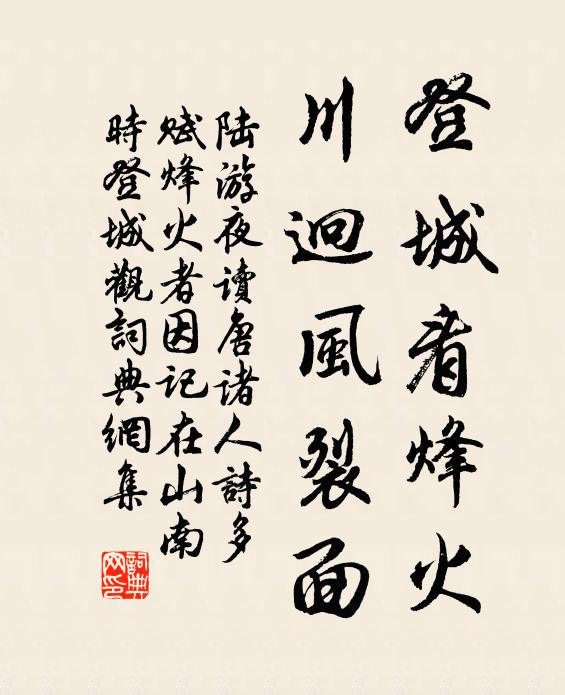 登城看烽火
川迥風裂面
陆游夜讀唐诸人詩多
赋烽火者因記在山南
時登城觀詞典網集
詞典
网印